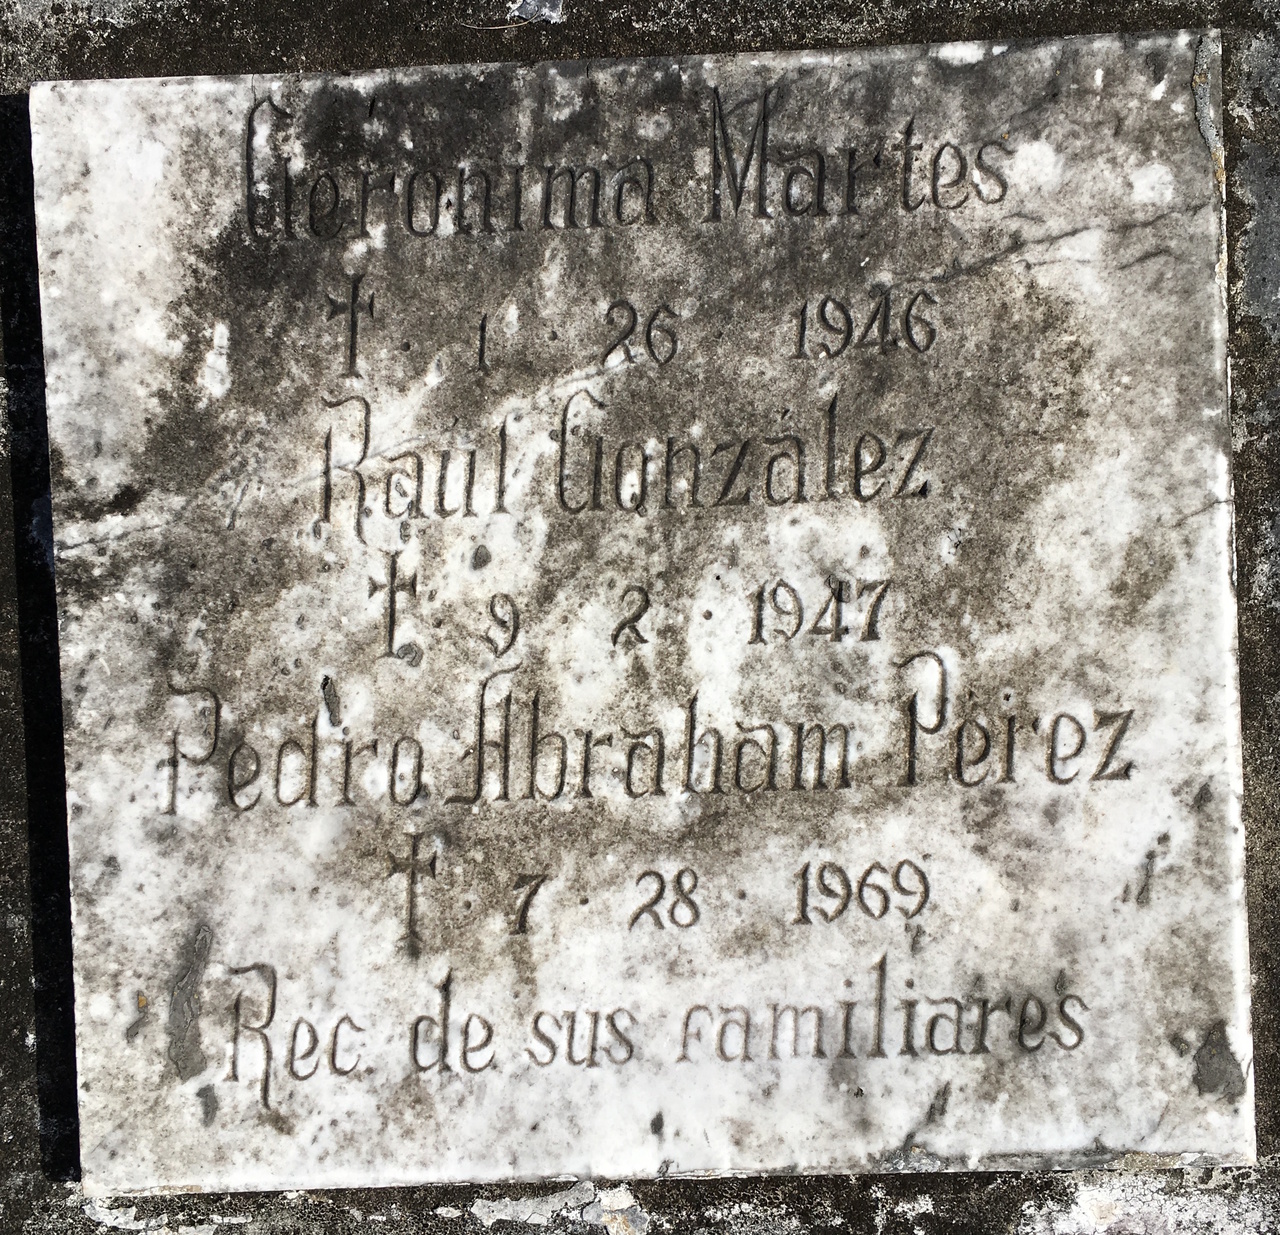 Gerónima Martes
† · 1 · 26 · 1946
Raúl González
† · 9 · 2 · 1947
Pedro Abraham Pérez
† · 7 · 28 · 1969
Rec. de sus familiares